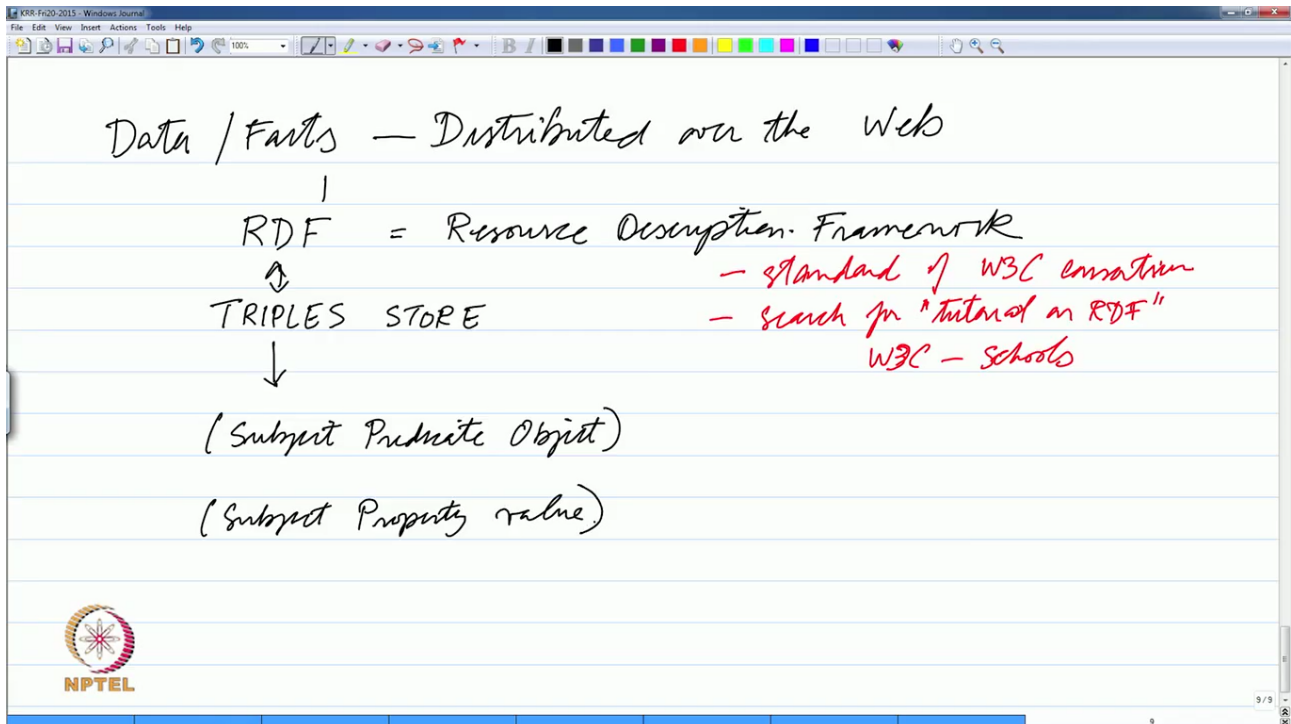 KRR-Fri20-2015 - Windows Journal
File Edit View Insert Actions Tools Help
100%
B I
Data / Facts — Distributed over the Web
RDF = Resource Description Framework
- standard of W3C consortium
TRIPLES STORE
- search for "tutorial on RDF"
W3C - Schools
(Subject Predicate Object)
(Subject Property value)
NPTEL
9/9
9